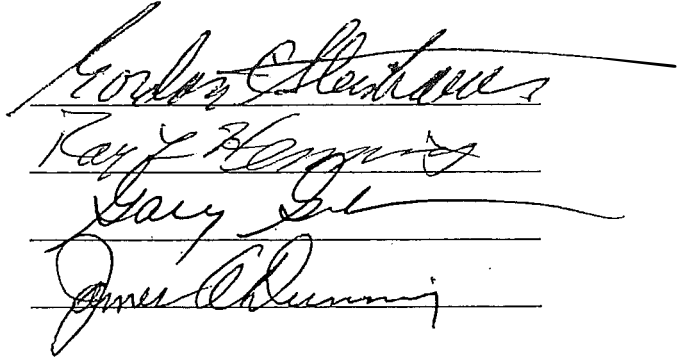 Gordon C Steinhauer
Ray L Hemming
Gary
James A Dunning